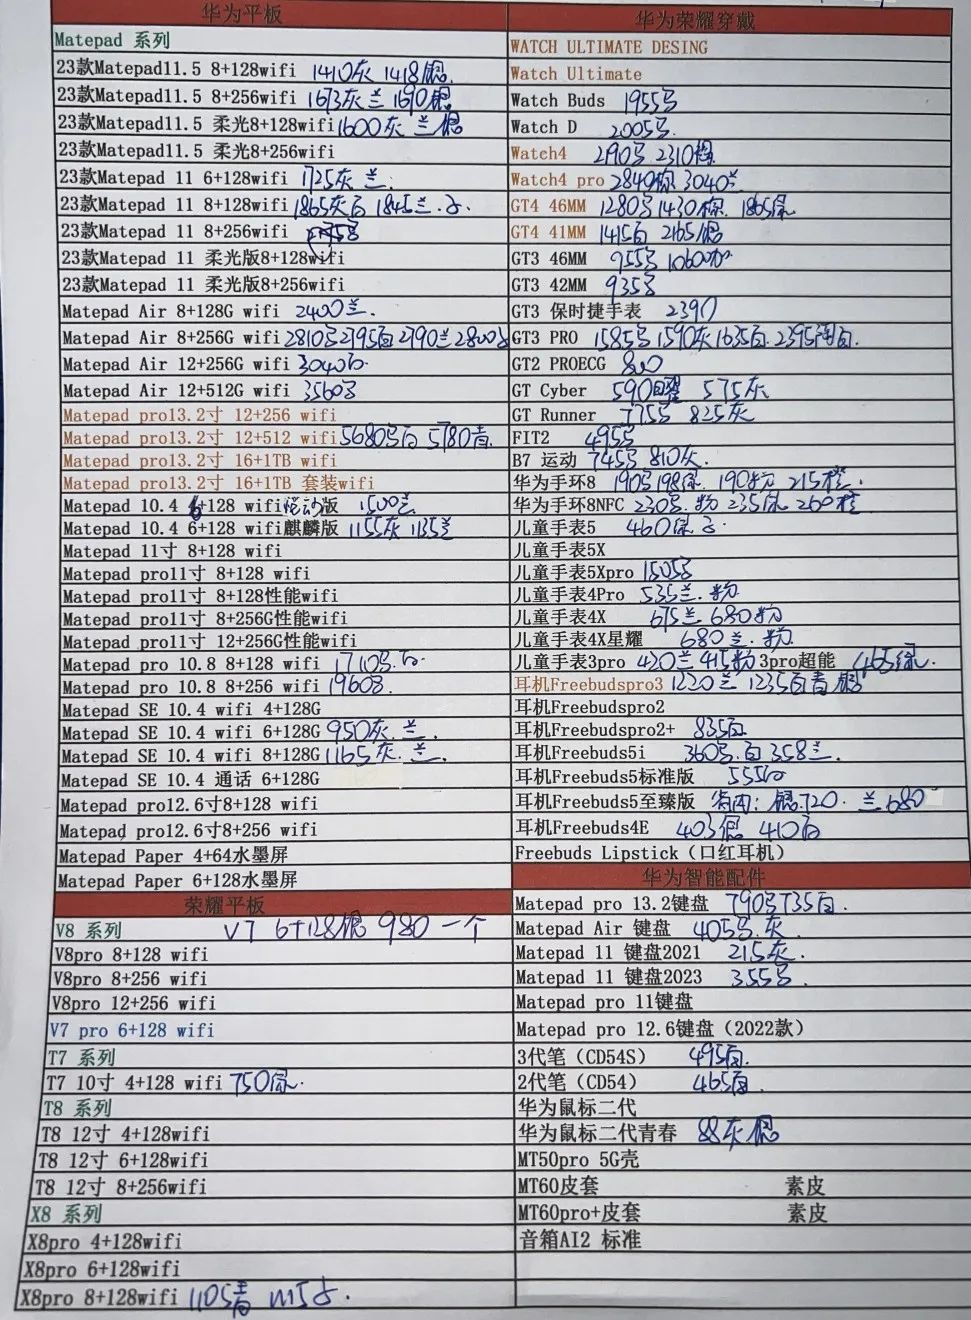 华为平板
Matepad 系列
23款Matepad11.5 8+128wifi 1410灰 1418银
23款Matepad11.5 8+256wifi 1673灰兰 1690银
23款Matepad11.5 柔光8+128wifi 1600灰 兰 银
23款Matepad11.5 柔光8+256wifi
23款Matepad 11 6+128wifi 1725灰 兰.
23款Matepad 11 8+128wifi 1865灰白 1845兰.
23款Matepad 11 8+256wifi
23款Matepad 11 柔光版8+128wifi
23款Matepad 11 柔光版8+256wifi
Matepad Air 8+128G wifi 2400兰.
Matepad Air 8+256G wifi 2810 2795白 2790兰 2800
Matepad Air 12+256G wifi 3040白
Matepad Air 12+512G wifi 3560
Matepad pro13.2寸 12+256 wifi
Matepad pro13.2寸 12+512 wifi 5680 白 5780青.
Matepad pro13.2寸 16+1TB wifi
Matepad pro13.2寸 16+1TB 套装wifi
Matepad 10.4 6+128 wifi 版 1500兰
Matepad 10.4 6+128 wifi麒麟版 1155灰 1135兰
Matepad 11寸 8+128 wifi
Matepad pro11寸 8+128 wifi
Matepad pro11寸 8+128性能wifi
Matepad pro11寸 8+256G性能wifi
Matepad pro11寸 12+256G性能wifi
Matepad pro 10.8 8+128 wifi 1710 白.
Matepad pro 10.8 8+256 wifi 1960
Matepad SE 10.4 wifi 4+128G
Matepad SE 10.4 wifi 6+128G 950灰.兰.
Matepad SE 10.4 wifi 8+128G 1165灰.兰.
Matepad SE 10.4 通话 6+128G
Matepad pro12.6寸8+128 wifi
Matepad pro12.6寸8+256 wifi
Matepad Paper 4+64水墨屏
Matepad Paper 6+128水墨屏
荣耀平板
V8 系列 V7 6+128银 980 一个
V8pro 8+128 wifi
V8pro 8+256 wifi
V8pro 12+256 wifi
V7 pro 6+128 wifi
T7 系列
T7 10寸 4+128 wifi 750绿.
T8 系列
T8 12寸 4+128wifi
T8 12寸 6+128wifi
T8 12寸 8+256wifi
X8 系列
X8pro 4+128wifi
X8pro 6+128wifi
X8pro 8+128wifi 1105青 1115
华为荣耀穿戴
WATCH ULTIMATE DESING
Watch Ultimate
Watch Buds 1955
Watch D 2005
Watch4 2190 2310棕
Watch4 pro 2840棕 3040兰
GT4 46MM 1280 1430棕. 1865绿
GT4 41MM 1415白 2165银
GT3 46MM 955 1060
GT3 42MM 935
GT3 保时捷手表 2390
GT3 PRO 1585 1590灰 1635白. 2395陶白.
GT2 PROECG 800
GT Cyber 590 575灰
GT Runner 775 825灰
FIT2 495
B7 运动 745 810灰.
华为手环8 190 198绿. 190粉 215橙.
华为手环8NFC 230 粉 235绿 260橙
儿童手表5 460绿
儿童手表5X
儿童手表5Xpro 1505
儿童手表4Pro 535兰.粉
儿童手表4X 675兰 680粉
儿童手表4X星耀 680兰.粉
儿童手表3pro 420兰 415粉 3pro超能 465绿.
耳机Freebudspro3 1220兰 1235白青 银
耳机Freebudspro2
耳机Freebudspro2+ 835白
耳机Freebuds5i 360 白 358兰.
耳机Freebuds5标准版 555白
耳机Freebuds5至臻版 银720. 兰680
耳机Freebuds4E 403银 410白
Freebuds Lipstick（口红耳机）
华为智能配件
Matepad pro 13.2键盘 790 735白.
Matepad Air 键盘 405 灰
Matepad 11 键盘2021 215灰.
Matepad 11 键盘2023 355
Matepad pro 11键盘
Matepad pro 12.6键盘（2022款）
3代笔（CD54S） 495白.
2代笔（CD54） 465白.
华为鼠标二代
华为鼠标二代青春 88灰 银
MT50pro 5G壳
MT60皮套 素皮
MT60pro+皮套 素皮
音箱AI2 标准